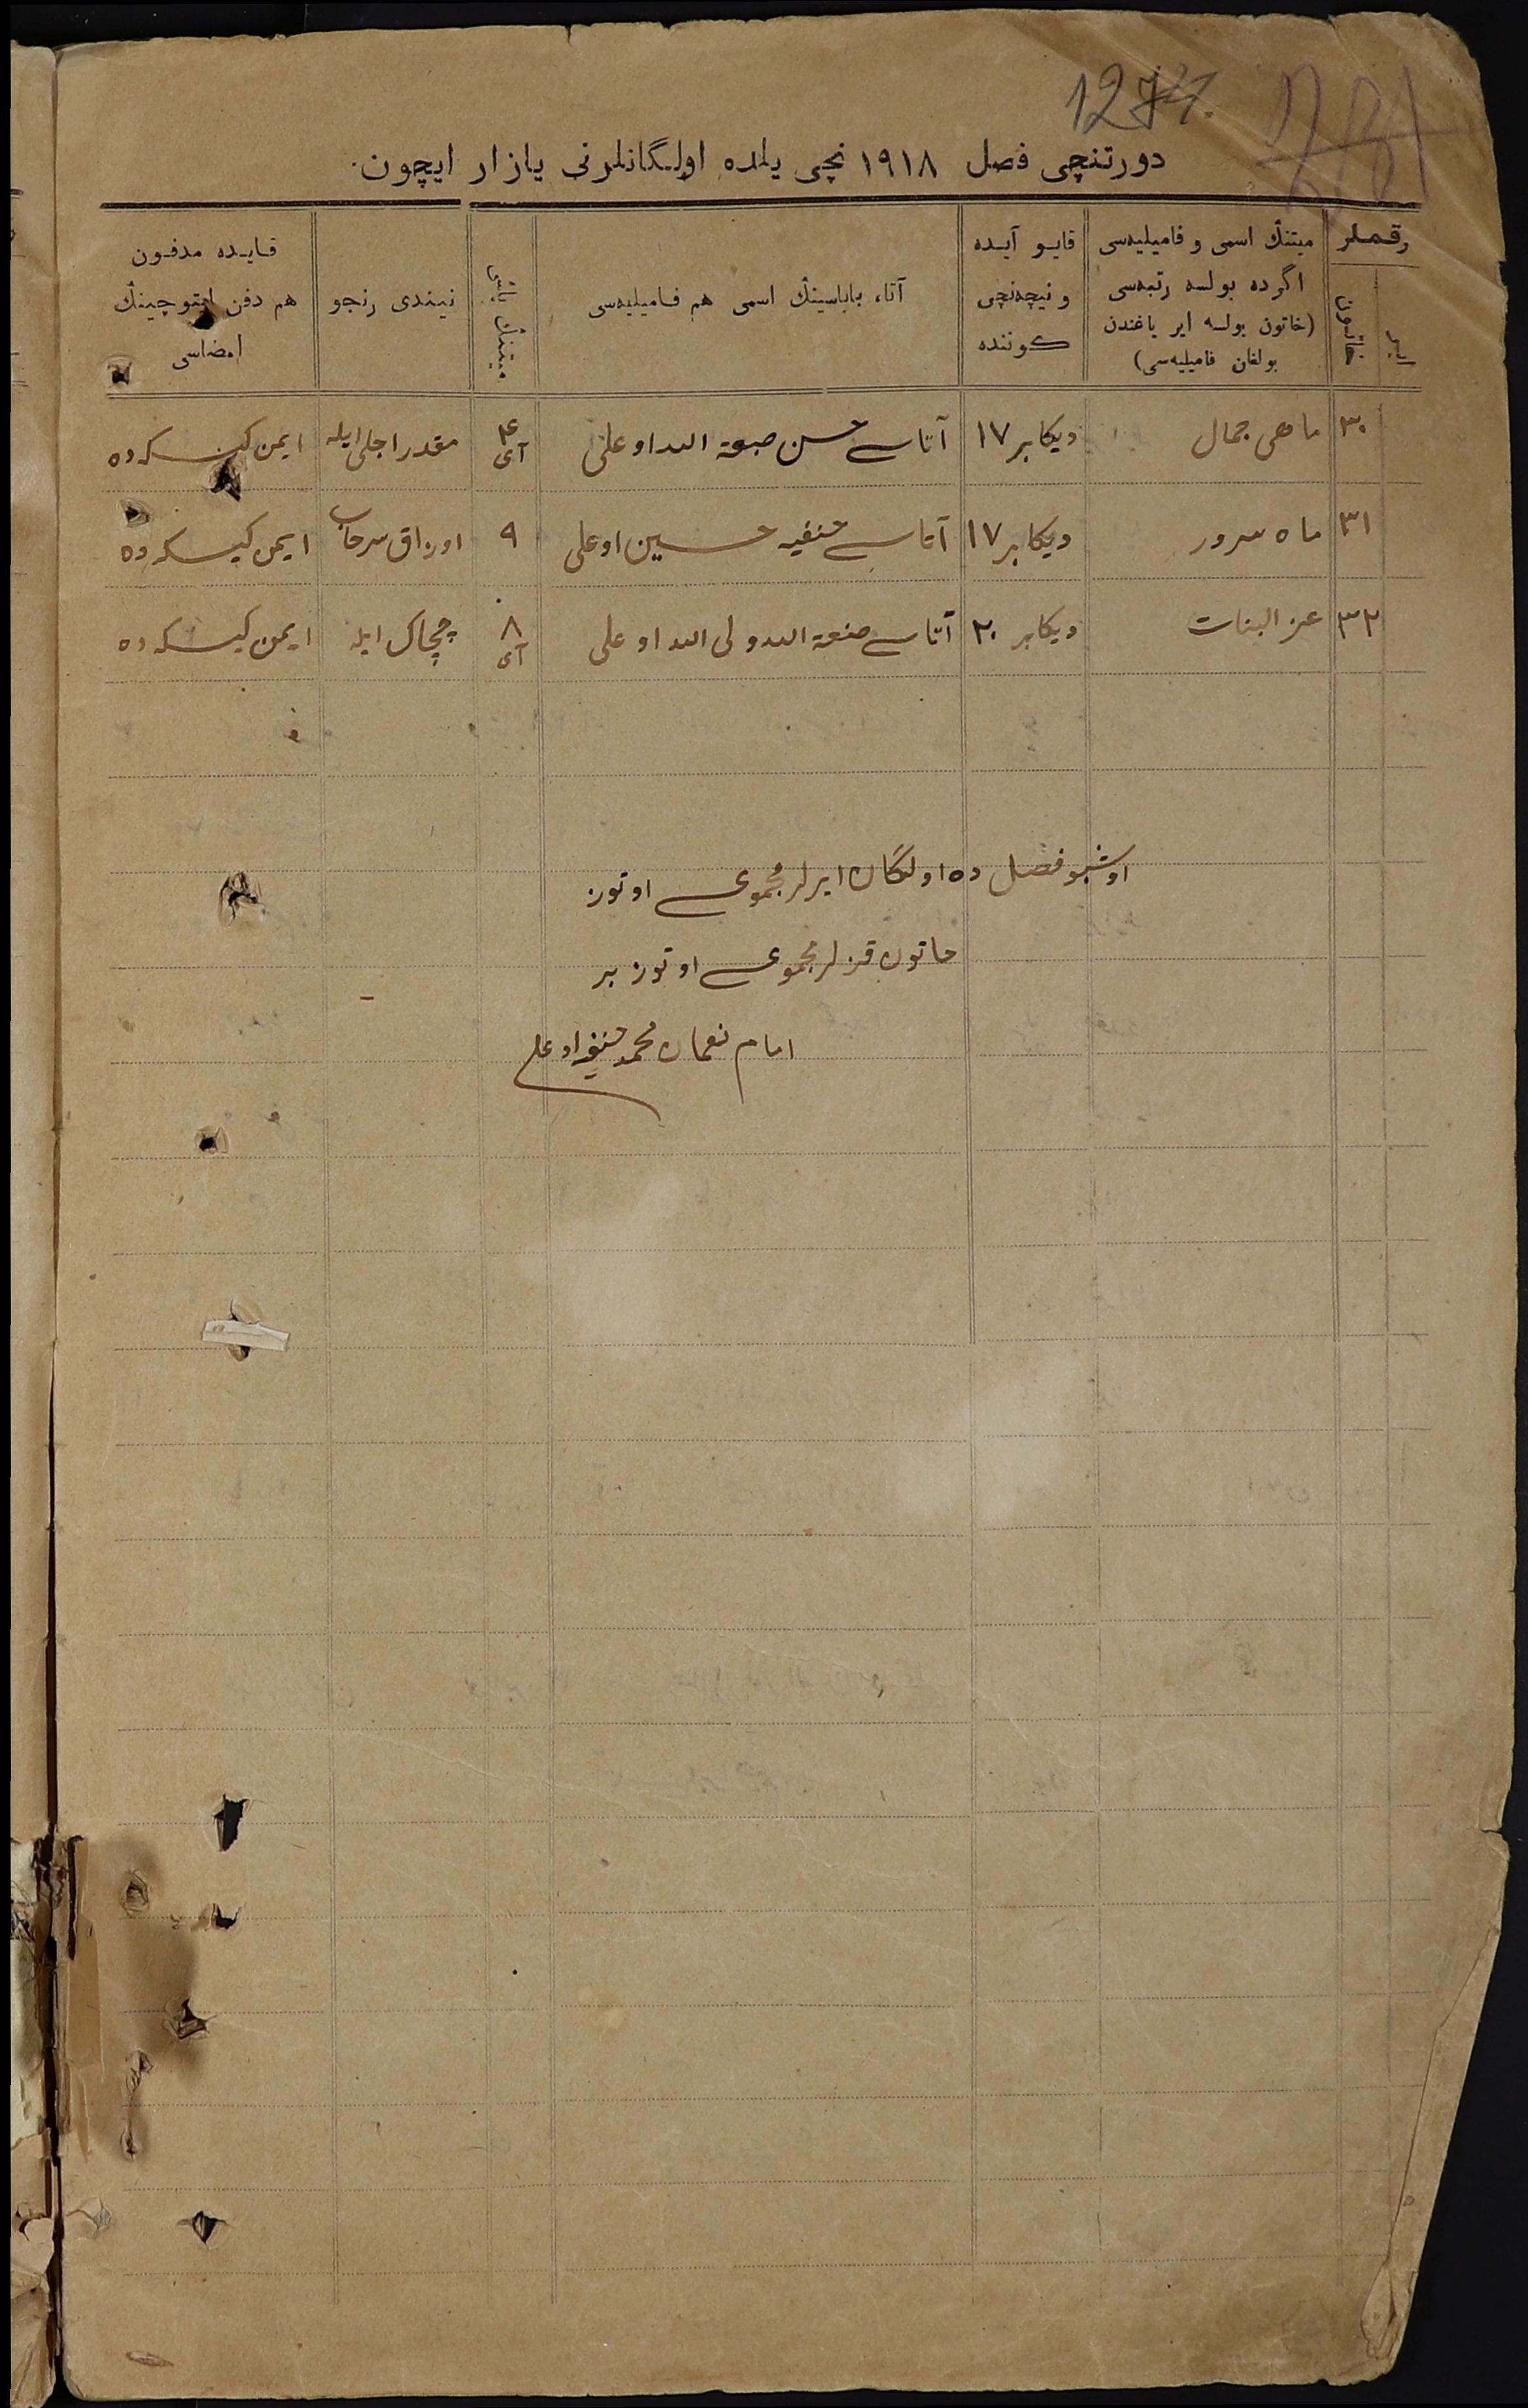 1274.
دورتنچی فصل ١٩١٨ نچی یلده اولگانلرنی یازار ایچون.
رقملر
ایر
خاتون
میتنڭ اسمی و فامیلیه‌سی
اگر ده بولسه رتبه‌سی
(خاتون بولسه ایر یاغندن
بولغان فامیلیه‌سی)
قایو آیده
و نیچه‌نچی
کوننده
آتا، باباسینڭ اسمی هم فامیلیه‌سی
میتنڭ یاشی
نیندی رنجو
قایده مدفون
هم دفن ایتوچینڭ
امضاسی
٣٠ ماهی جمال دیکابر ١٧ آتاسی حسن صبغة الله اوغلی ٤ آی مقدر اجلی ایله ایمن کیسکه‌ده
٣١ ماه سرور دیکابر ١٧ آتاسی حنفیه حسین اوغلی ٩ اوزاق سرخاب ایمن کیسکه‌ده
٣٢ عز البنات دیکابر ٢٠ آتاسی صنعة الله ولی الله اوغلی ٨ آی چچاک ایله ایمن کیسکه‌ده
اوشبو فصل ده اولگان ایرلر مجموعی اوتوز
خاتون قزلر مجموعی اوتوز بر
امام نعمان محمد حنفی اوغلی